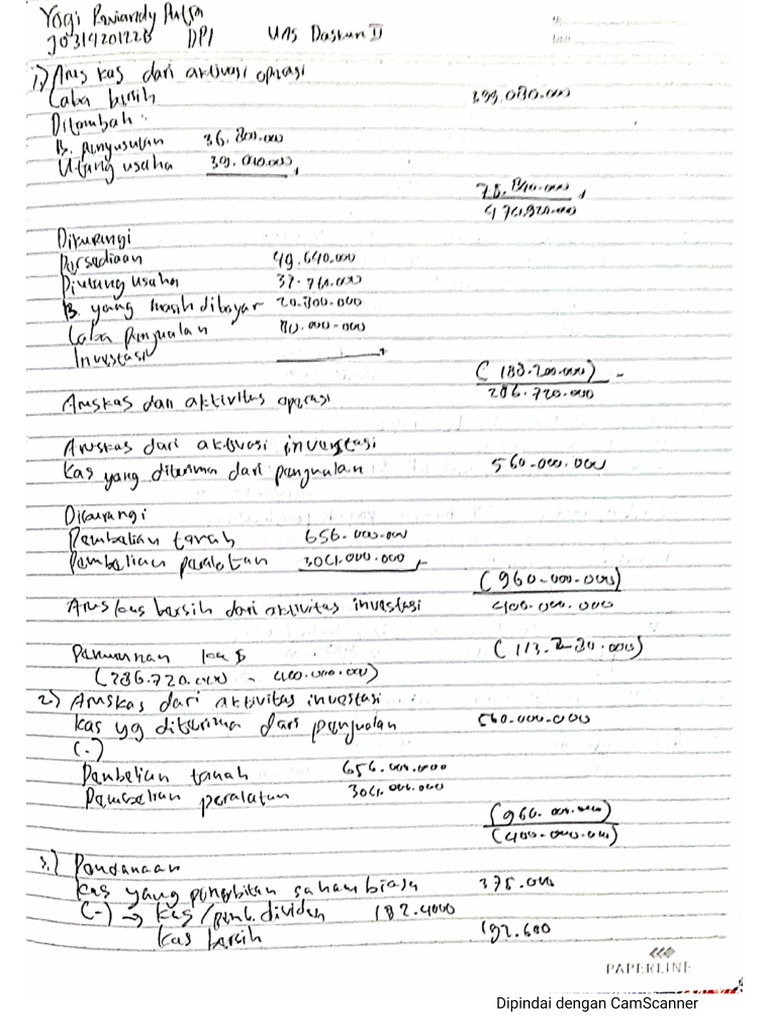 Yogi
J0314201226 DP1 UAS Daskun II
1.) Arus kas dari aktivasi operasi
Laba bersih 399.080.000
Ditambah :
B. penyusutan 36.800.000
Utang usaha 39.040.000
75.840.000
474.920.000
Dikurangi
Persediaan 49.640.000
Piutang usaha 37.760.000
B. yang masih dibayar 20.800.000
Laba penjualan 80.000.000
Investasi
(188.200.000) -
286.720.000
Aruskas dari aktivitas operasi
Aruskas dari aktivasi investasi
Kas yang diterima dari penjualan 560.000.000
Dikurangi
Pembelian tanah 656.000.000
Pembelian peralatan 304.000.000
(960.000.000)
Arus kas bersih dari aktivitas investasi 400.000.000
Penurunan kas (113.280.000)
(286.720.000 - 400.000.000)
2.) Aruskas dari aktivitas investasi
kas yg diterima dari penjualan 560.000.000
(-)
Pembelian tanah 656.000.000
Pembelian peralatan 304.000.000
(960.000.000)
(400.000.000)
3.) Pendanaan
Kas yang penerbitan saham biasa 375.000
(-) → kas/pemb. dividen 182.4000
kas bersih 192.600
PAPERLINE
Dipindai dengan CamScanner